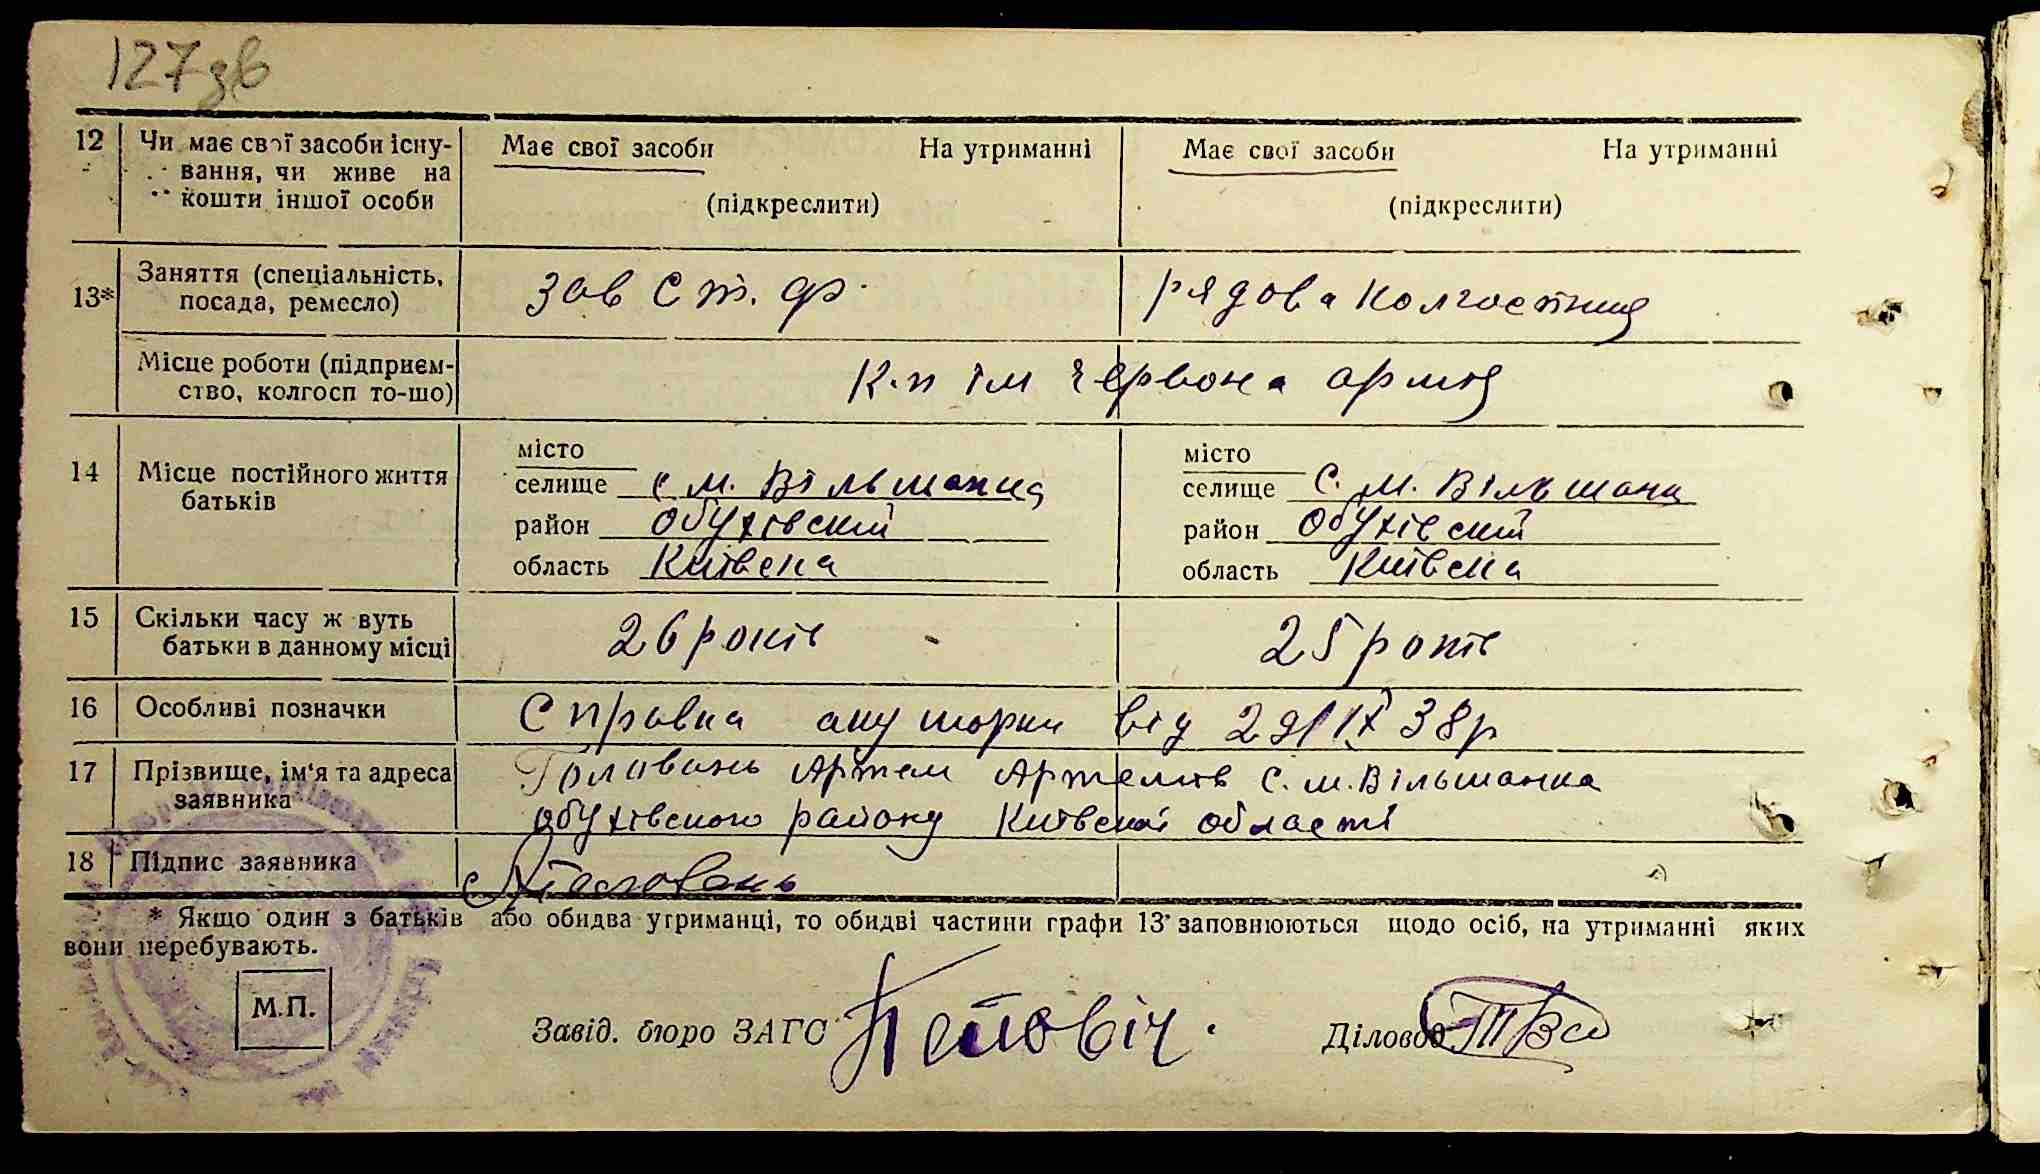 127зв
12 Чи має свої засоби існу- Має свої засоби На утриманні Має свої засоби На утриманні
вання, чи живе на
кошти іншої особи (підкреслити) (підкреслити)
13* Заняття (спеціальність, зав ст. ф. рядова колгоспниця
посада, ремесло)
Місце роботи (підприєм- К-п ім червона армія
ство, колгосп то-шо)
14 Місце постійного життя місто місто
батьків селище с м. Вільшанка селище с. м. Вільшанка
район Обухівский район Обухівский
область Київска область Київска
15 Скільки часу ж вуть 26 років 25 років
батьки в данному місці
16 Особливі позначки Справка акушорки від 29/IX 38р
17 Прізвище, ім'я та адреса Головань Артем Артемів С. м. Вільшанка
заявника Обухівского району Київскої області
18 Підпис заявника Головань
* Якщо один з батьків або обидва утриманці, то обидві частини графи 13* заповнюються щодо осіб, на утриманні яких
вони перебувають.
М.П.
Завід. бюро ЗАГС Діловод